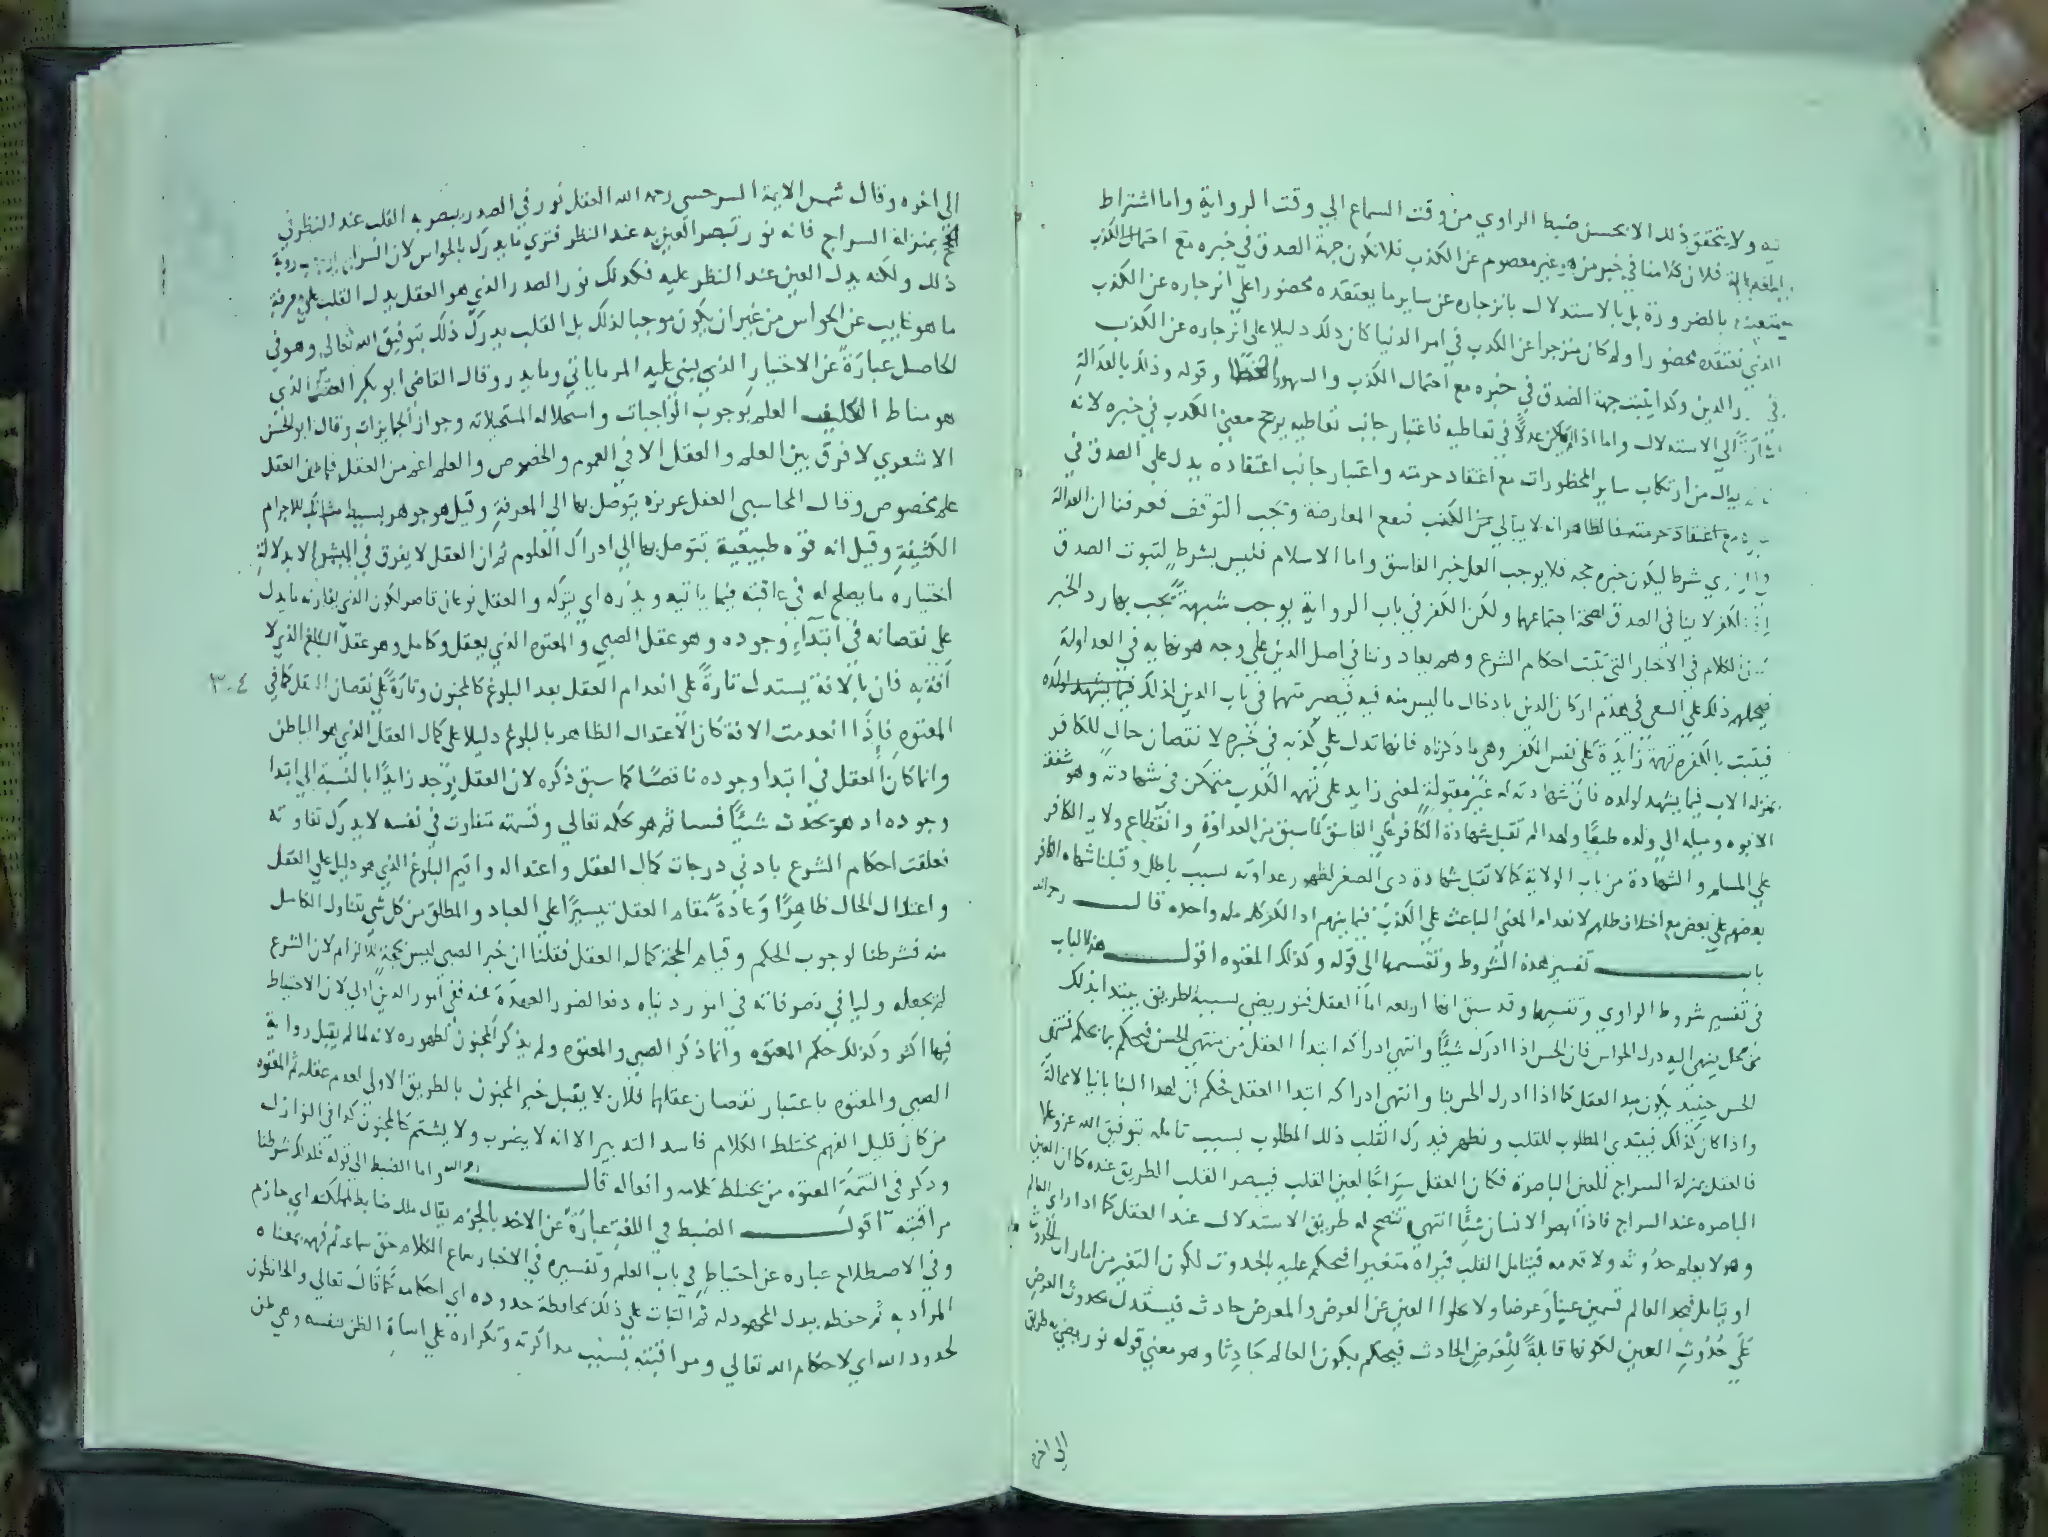 ولا يتحقق ذلك الا بحسن ضبط الراوي من وقت السماع الي وقت الرواية واما اشتراط
فلان كلامنا في خبر من هو غير معصوم عن الكذب فلا تكون جهة الصدق في خبره مع احتمال الكذب
بالضرورة بل بالاستدلال بانزجاره عن ساير ما يعتقده محضورا علي انزجاره عن الكذب
الذي نعتقده محضورا ولما كان منزجرا عن الكذب في امر الدنيا كان ذلك دليلا علي انزجاره عن الكذب
في الدين وكذا يثبت جهة الصدق في خبره مع احتمال الكذب والسهو وقوله وذلك بالعدالة
الي الاستدلال واما اذا لم يكن عدلا في تعاطيه فاعتبار جانب تعاطيه يرجح معني الكذب في خبره لانه
من ارتكاب ساير المحظورات مع اعتقاد حرمته واعتبار جانب اعتقاده يدل علي الصدق في
مع اعتقاد حرمته فالظاهر انه لا يبالي من الكذب فتقع المعارضة ويجب التوقف فعرفنا ان العدالة
شرط ليكون خبره حجة فلا يوجب العمل خبر الفاسق واما الاسلام فليس بشرط لثبوت الصدق
الكفر لا ينافي الصدق لصحة اجتماعهما ولكن الكفر في باب الرواية يوجب شبهة يجب بها رد الخبر
الكلام في الاخبار التي تثبت احكام الشرع وهم يعادوننا في اصل الدين علي وجه هو نهاية في العداوة
فيحملهم ذلك علي السعي في هدم اركان الدين بادخال ما ليس منه فيه فيصير متهما في باب الدين لذلك فيما يشهد لولده
فيثبت بالكفر تهمة زايدة علي نفس الكفر وهي ما ذكرناه فانها تدل علي كذبه في خبره لا نقصان حال للكافر
بمنزلة الاب فيما يشهد لولده فان شهادته له غير مقبولة لمعني زايد علي تهمة الكذب متمكن في شهادته وهو شفقة
الابوه وميله الي ولده طبعا ولهذا لم تقبل شهادة الكافر علي الفاسق لما سبق من العداوة وانقطاع ولاية الكافر
علي المسلم والشهادة من باب الولاية كما لا تقبل شهادة ذي الصغر لظهور عداوته بسبب باطل وقبلنا شهادة الكافر
بعضهم علي بعض مع اختلاف مللهم لانعدام المعني الباعث علي الكذب فيما بينهم اذ الكفر كله ملة واحدة قال رحمه الله
باب تفسير هذه الشروط وتقسيمها الي قوله وكذلك المعتوه اقول هذا الباب
في تفسير شروط الراوي وتقسيمها وقد سبق انها اربعة اما العقل فنور يضي بسببه الطريق يبتدا بذلك
من محل ينتهي اليه درك الحواس فان الحس اذا ادرك شيئا وانتهي ادراكه ابتدا العقل من منتهي الحس
الحس حينيذ يكون مبدا العقل كما اذا ادرك الحس بنا وانتهي ادراكه ابتدا العقل فحكم ان لهذا البنا بانيا لا محالة
واذا كان كذلك فيبتدي المطلوب للقلب ويظهر فيدرك القلب ذلك المطلوب بسبب تامله بتوفيق الله عز وعلا
فالعقل بمنزلة السراج للعين الباصرة فكان العقل سراجا لعين القلب فيبصر القلب الطريق عنده كما ان العين
الباصره عند السراج فاذا ابصر الانسان شيئا انتهي يتضح له طريق الاستدلال عند العقل كما اذا راي العالم
وهو لا يعلم حدوثه ولا قدمه فيتامل القلب فيراه متغيرا فيحكم عليه بالحدوث لكون التغير من امارات الحدوث
او يتامل فيجد العالم قسمين عينا وعرضا ولا يخلوا العين عن العرض والعرض حادث فيستدل بحدوث العرض
علي حدوث العين لكونها قابلة للعرض الحادث فيحكم بكون العالم حادثا وهو معني قوله نور يضي به طريق
الي اخره
الي اخره وقال شمس الايمة السرخسي رحمه الله العقل نور في الصدر يبصر به القلب عند النظر في
بمنزلة السراج فانه نور تبصر العين به عند النظر فتري ما يدرك بالحواس لان السراج يوجب روية
ذلك ولكنه يدل العين عند النظر عليه فكذلك نور الصدر الذي هو العقل يدل القلب علي معرفة
ما هو غايب عن الحواس من غير ان يكون موجبا لذلك بل القلب يدرك ذلك بتوفيق الله تعالي وهو في
الحاصل عبارة عن الاختيار الذي يبني عليه المر ما ياتي وما يذر وقال القاضي ابو بكر العقل الذي
هو مناط التكليف العلم بوجوب الواجبات واستحالة المستحيلات وجواز الجايزات وقال ابو الحسن
الاشعري لا فرق بين العلم والعقل الا في العموم والخصوص والعلم اعم من العقل العقل
علم مخصوص وقال المحاسبي العقل غريزة يتوصل بها الي المعرفة وقيل هو جوهر بسيط للاجرام
الكثيفة وقيل انه قوة طبيعية تتوصل بها الي ادراك العلوم ثم ان العقل لا يعرف في البشر الا بدلالة
اختياره ما يصلح له في عاقبته فيما ياتيه ويذره اي يتركه والعقل نوعان قاصر لكون الذي يقارنه ما يدل
علي نقصانه في ابتداء وجوده وهو عقل الصبي والمعتوه الذي يعقل وكامل وهو عقل البالغ الذي لا
افة به فان بالافة يستدل تارة علي انعدام العقل بعد البلوغ كالمجنون وتارة علي نقصان العقل كما في
٣٠٤
المعتوه فاذا انعدمت الافة كان الاعتدال الظاهر بالبلوغ دليلا علي كمال العقل الذي هو الباطن
وانما كان العقل في ابتدا وجوده ناقصا كما سبق ذكره لان العقل يوجد زايدا بالنسبة الي ابتدا
وجوده اذ هو يحدث شيئا فشيا ثم هو بحكمه تعالي وقسمته متفاوت في نفسه لا يدرك تفاوته
فعلقت احكام الشرع بادني درجات كمال العقل واعتداله واقيم البلوغ الذي هو دليل علي العقل
واعتدال الحال ظاهرا وعادة مقام العقل تيسيرا علي العباد والمطلق من كل شي يتناول الكامل
منه فشرطنا لوجوب الحكم وقيام الحجة كمال العقل فقلنا ان خبر الصبي ليس بحجة للالزام لان الشرع
لم يجعله وليا في تصرفاته في امور دنياه دفعا لضرر العهدة عنه ففي امور الدين اولي لان الاحتياط
فيها اكثر وكذلك حكم المعتوه وانما ذكر الصبي والمعتوه ولم يذكر المجنون لظهوره لانه لما لم يقبل رواية
الصبي والمعتوه باعتبار نقصان عقلهما فلان لا يقبل خبر المجنون بالطريق الاولي لعدم عقله ثم المعتوه
من كان قليل الفهم مختلط الكلام فاسد التدبير الا انه لا يضرب ولا يشتم كالمجنون كذا في النوازل
وذكر في التتمة المعتوه من يختلط كلامه وافعاله قال رحمه الله واما الضبط الي قوله فلذلك شرطنا
مراقبته اقول الضبط في اللغة عبارة عن الاخذ بالجزم يقال ملك ضابط لمملكته اي حازم
وفي الاصطلاح عبارة عن احتياط في باب العلم وتفسيره في الاخبار سماع الكلام حق سماعه ثم فهمه بمعناه
المراد به ثم حفظه ببذل المجهود له ثم الثبات علي ذلك بمحافظة حدوده اي احكامه كما قال تعالي والحافظون
لحدود الله اي لاحكام الله تعالي ومراقبته بسبب مذاكرته وتكراره علي اساة الظن بنفسه وهي ظن